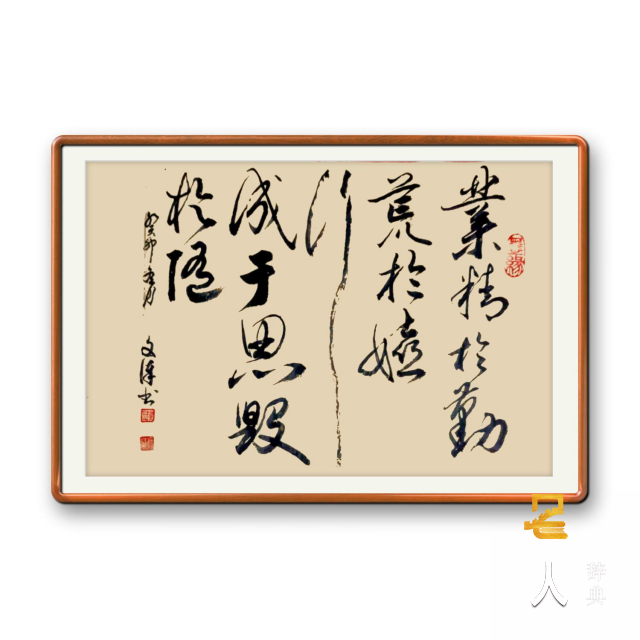 業精於勤
荒於嬉
行
成于思毁
於随
癸卯春月
文津书
名人
辞典